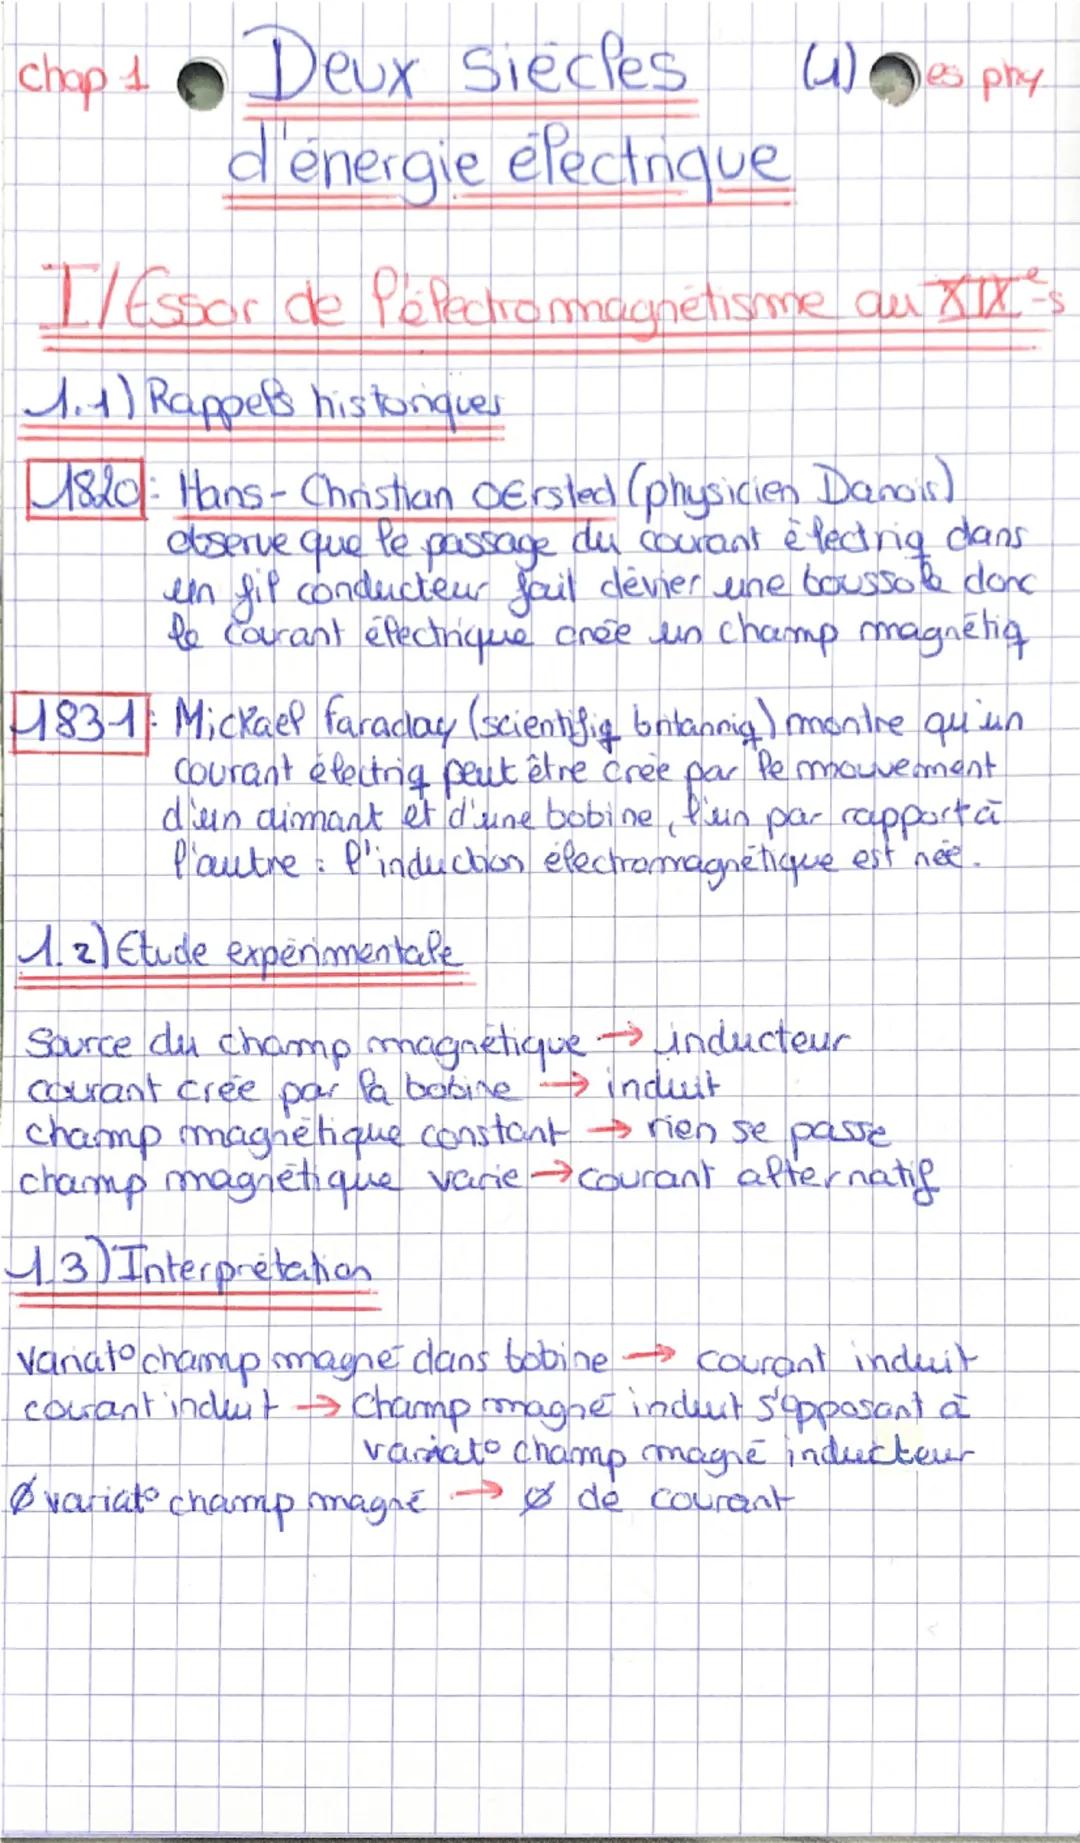 chap 1 Deux siècles (1) es phy
d'énergie électrique
I/ Essor de l'électromagnétisme au XIXe s
1.1) Rappels historiques
1820: Hans-Christian OErsted (physicien Danois)
observe que le passage du courant électriq dans
un fil conducteur fait dévier une boussole donc
le courant électrique crée un champ magnétiq
1831: Mickael faraday (scientifiq britanniq) montre qu'un
courant électriq peut être crée par le mouvement
d'un aimant et d'une bobine, l'un par rapport à
l'autre : l'induction électromagnétique est née.
1.2) Etude expérimentale
Source du champ magnétique → inducteur
courant crée par la bobine → induit
champ magnétique constant → rien se passe
champ magnétique varie → courant alternatif
1.3) Interprétation
variat° champ magné dans bobine → courant induit
courant induit → champ magné induit s'opposant à
variat° champ magné inducteur
Ø variat° champ magné → Ø de courant